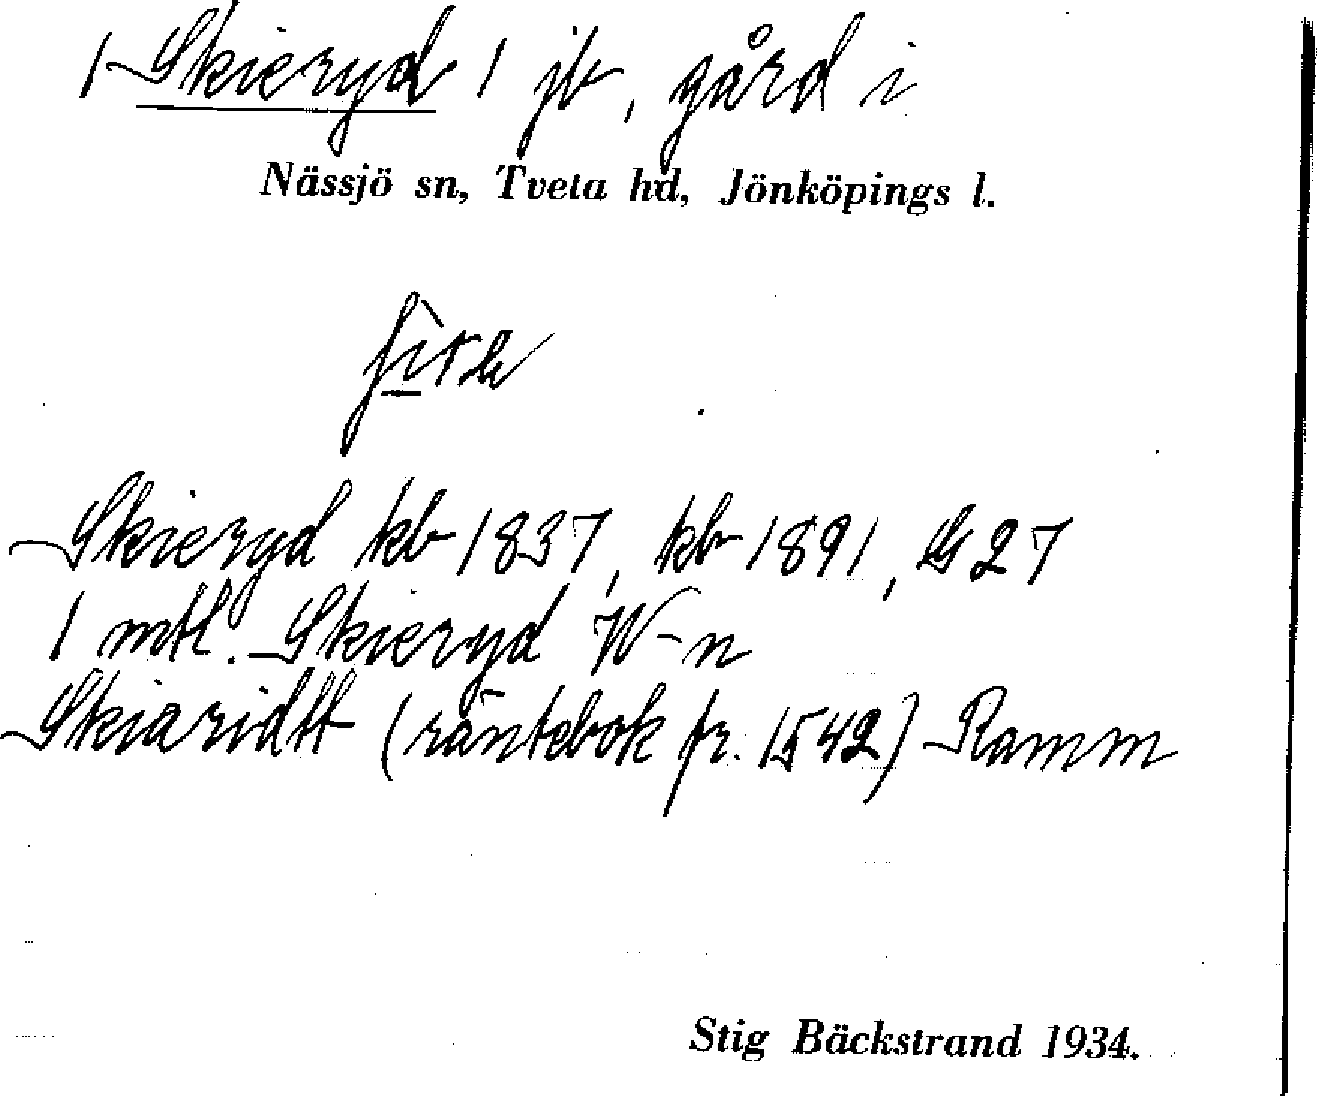 1 Skieryd 1 jb, gård i
Nässjö sn, Tveta hd, Jönköpings l.
Skieryd kb 1837, kb 1891, G 27
1 mtl. Skieryd W-n
Skiaridtt (räntebok fr. 1542) Ramm
Stig Bäckstrand 1934.